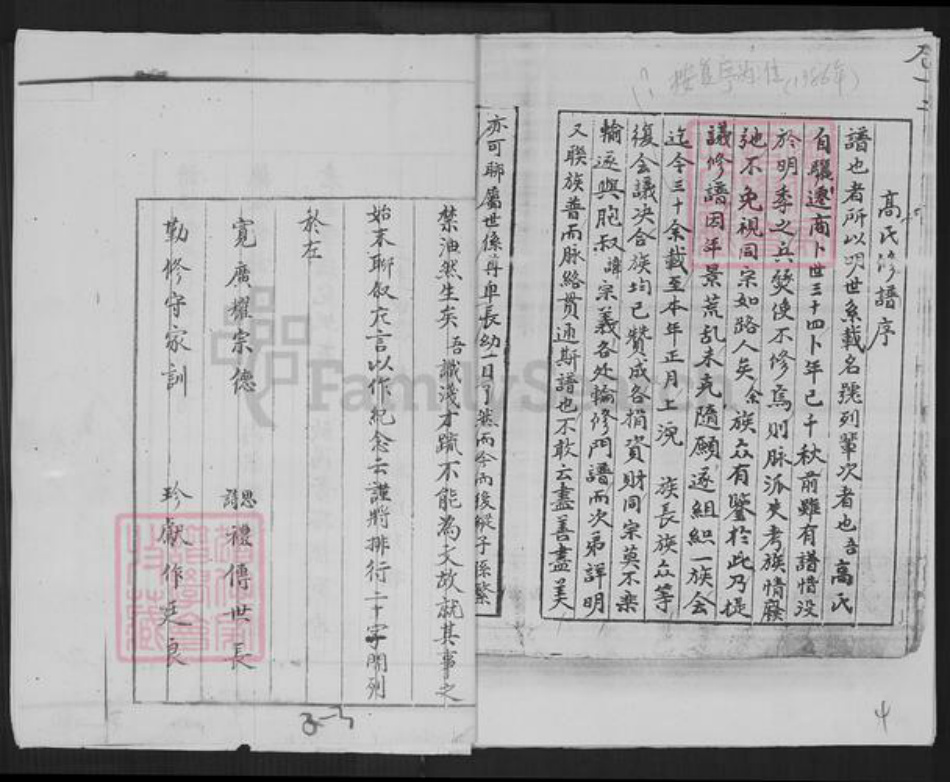 高氏修譜序
譜也者所以明世系載名號列輩次者也吾高氏
自驥遷商卜世三十四卜年已千秋前雖有譜惜没
於明季之兵燹使不修焉則脉派失考族情廢
弛不免視同宗如路人矣余族众有鑒於此乃提
議修譜因年景荒乱未克隨願遂組織一族会
迄今三十余載至本年正月上浣 族長族众等
復会議决合族均已贊成各捐資財同宗莫不樂
輸遂與胞叔諱宗義各处輪修門譜而次弟詳明
又聯族普而脉絡贯通斯譜也不敢云盡善盡美
亦可聊屬世係尊卑長幼一目了然而今而後縱子孫繁
禁油然生矣吾識淺才疏不能為文故就其事之
始末聊叙衣言以作紀念云謹將排行二十字開列
於左
寛廣耀宗德 思謥禮傳世長
勤修守家訓 珍獻作廷良
3-3
4
(1986年)
FamilySearch